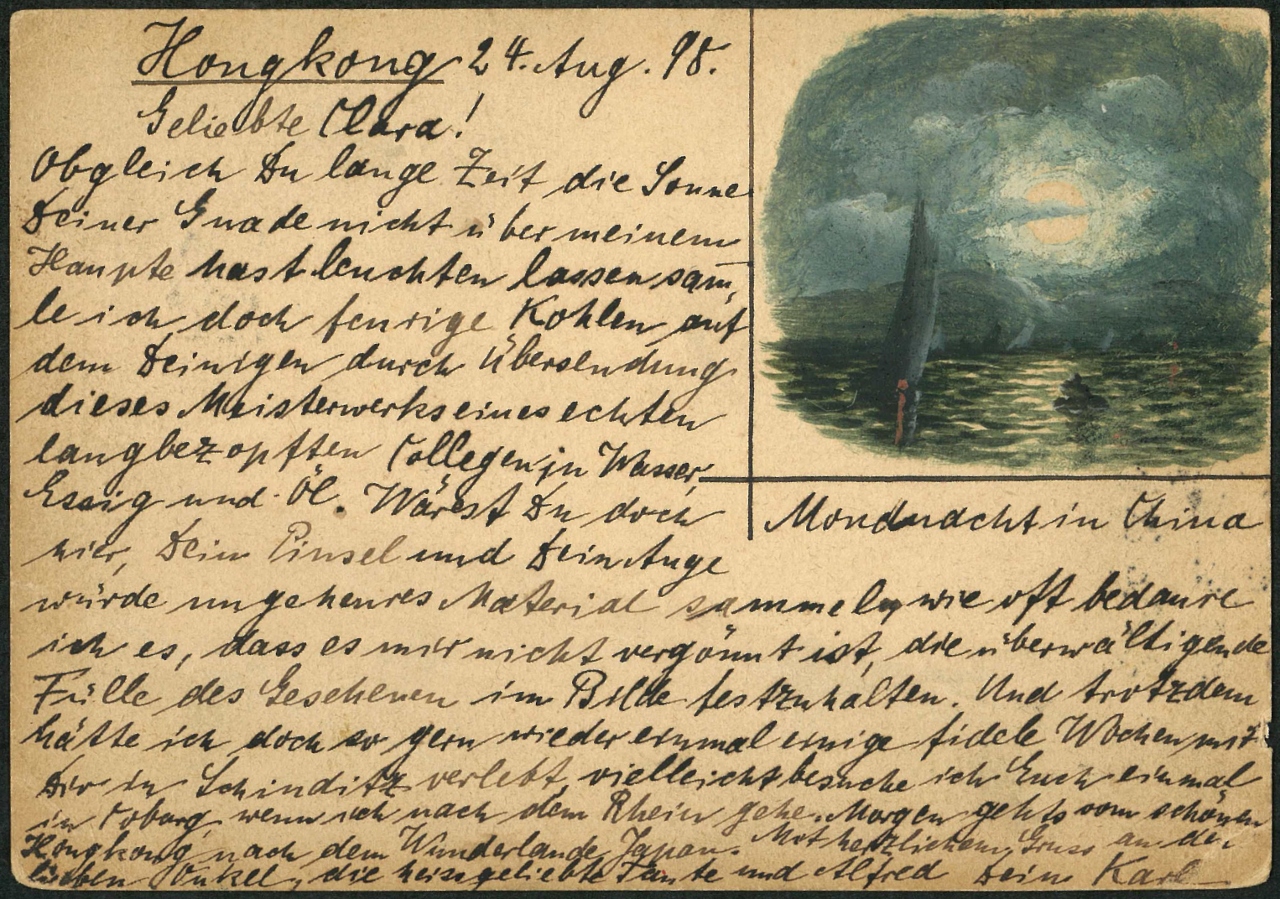 Hongkong 24. Aug. 98.
Geliebte Clara!
Obgleich Du lange Zeit die Sonne
Deiner Gnade nicht über meinem
Haupte hast leuchten lassen sam̅,
le ich doch feurige Kohlen auf
dem Deinigen durch Übersendung
dieses Meisterwerks eines echten
langbezopften Collegen in Wasser,
Essig und Öl. Wärest Du doch
hier, Dein Pinsel und Dein Auge
Mondnacht in China
würde ungeheures Material sammeln, wie oft bedaure
ich es, dass es mir nicht vergönnt ist, die überwältigende
Fülle des Gesehenen im Bilde festzuhalten. Und trotzdem
hätte ich doch so gern wieder einmal einige fidele Wochen mit
Dir in Schinditz verlebt, vielleicht besuche ich Euch einmal
in Coburg, wenn ich nach dem Rhein gehe. Morgen gehts vom schönen
Hongkong nach dem Wunderlande Japan. Mit herzlichem Gruss an den
lieben Onkel, die heissgeliebte Tante und Alfred Dein Karl